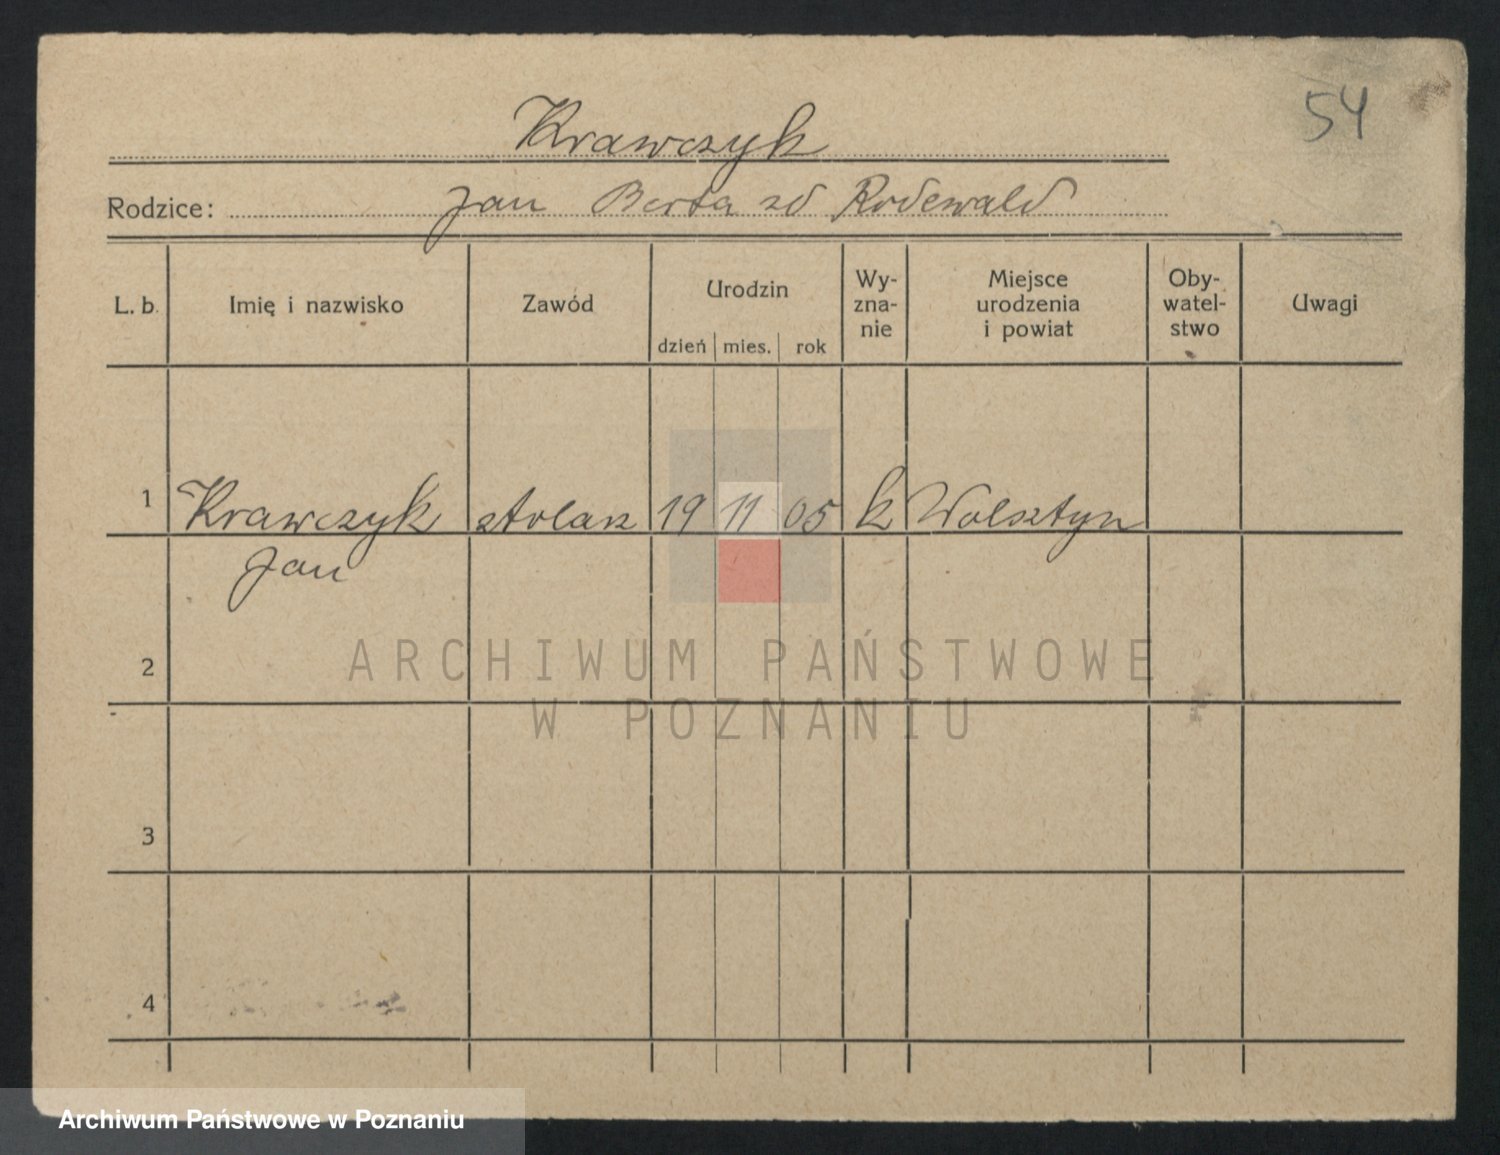 54
Krawczyk
Rodzice: Jan Berta zd Rodewald
L. b. Imię i nazwisko Zawód Urodzin dzień mies. rok Wy-zna-nie Miejsce urodzenia i powiat Oby-watel-stwo Uwagi
1 Krawczyk stolarz 19 11 05 k Wolsztyn
Jan
2
ARCHIWUM PAŃSTWOWE
W POZNANIU
3
4
Archiwum Państwowe w Poznaniu